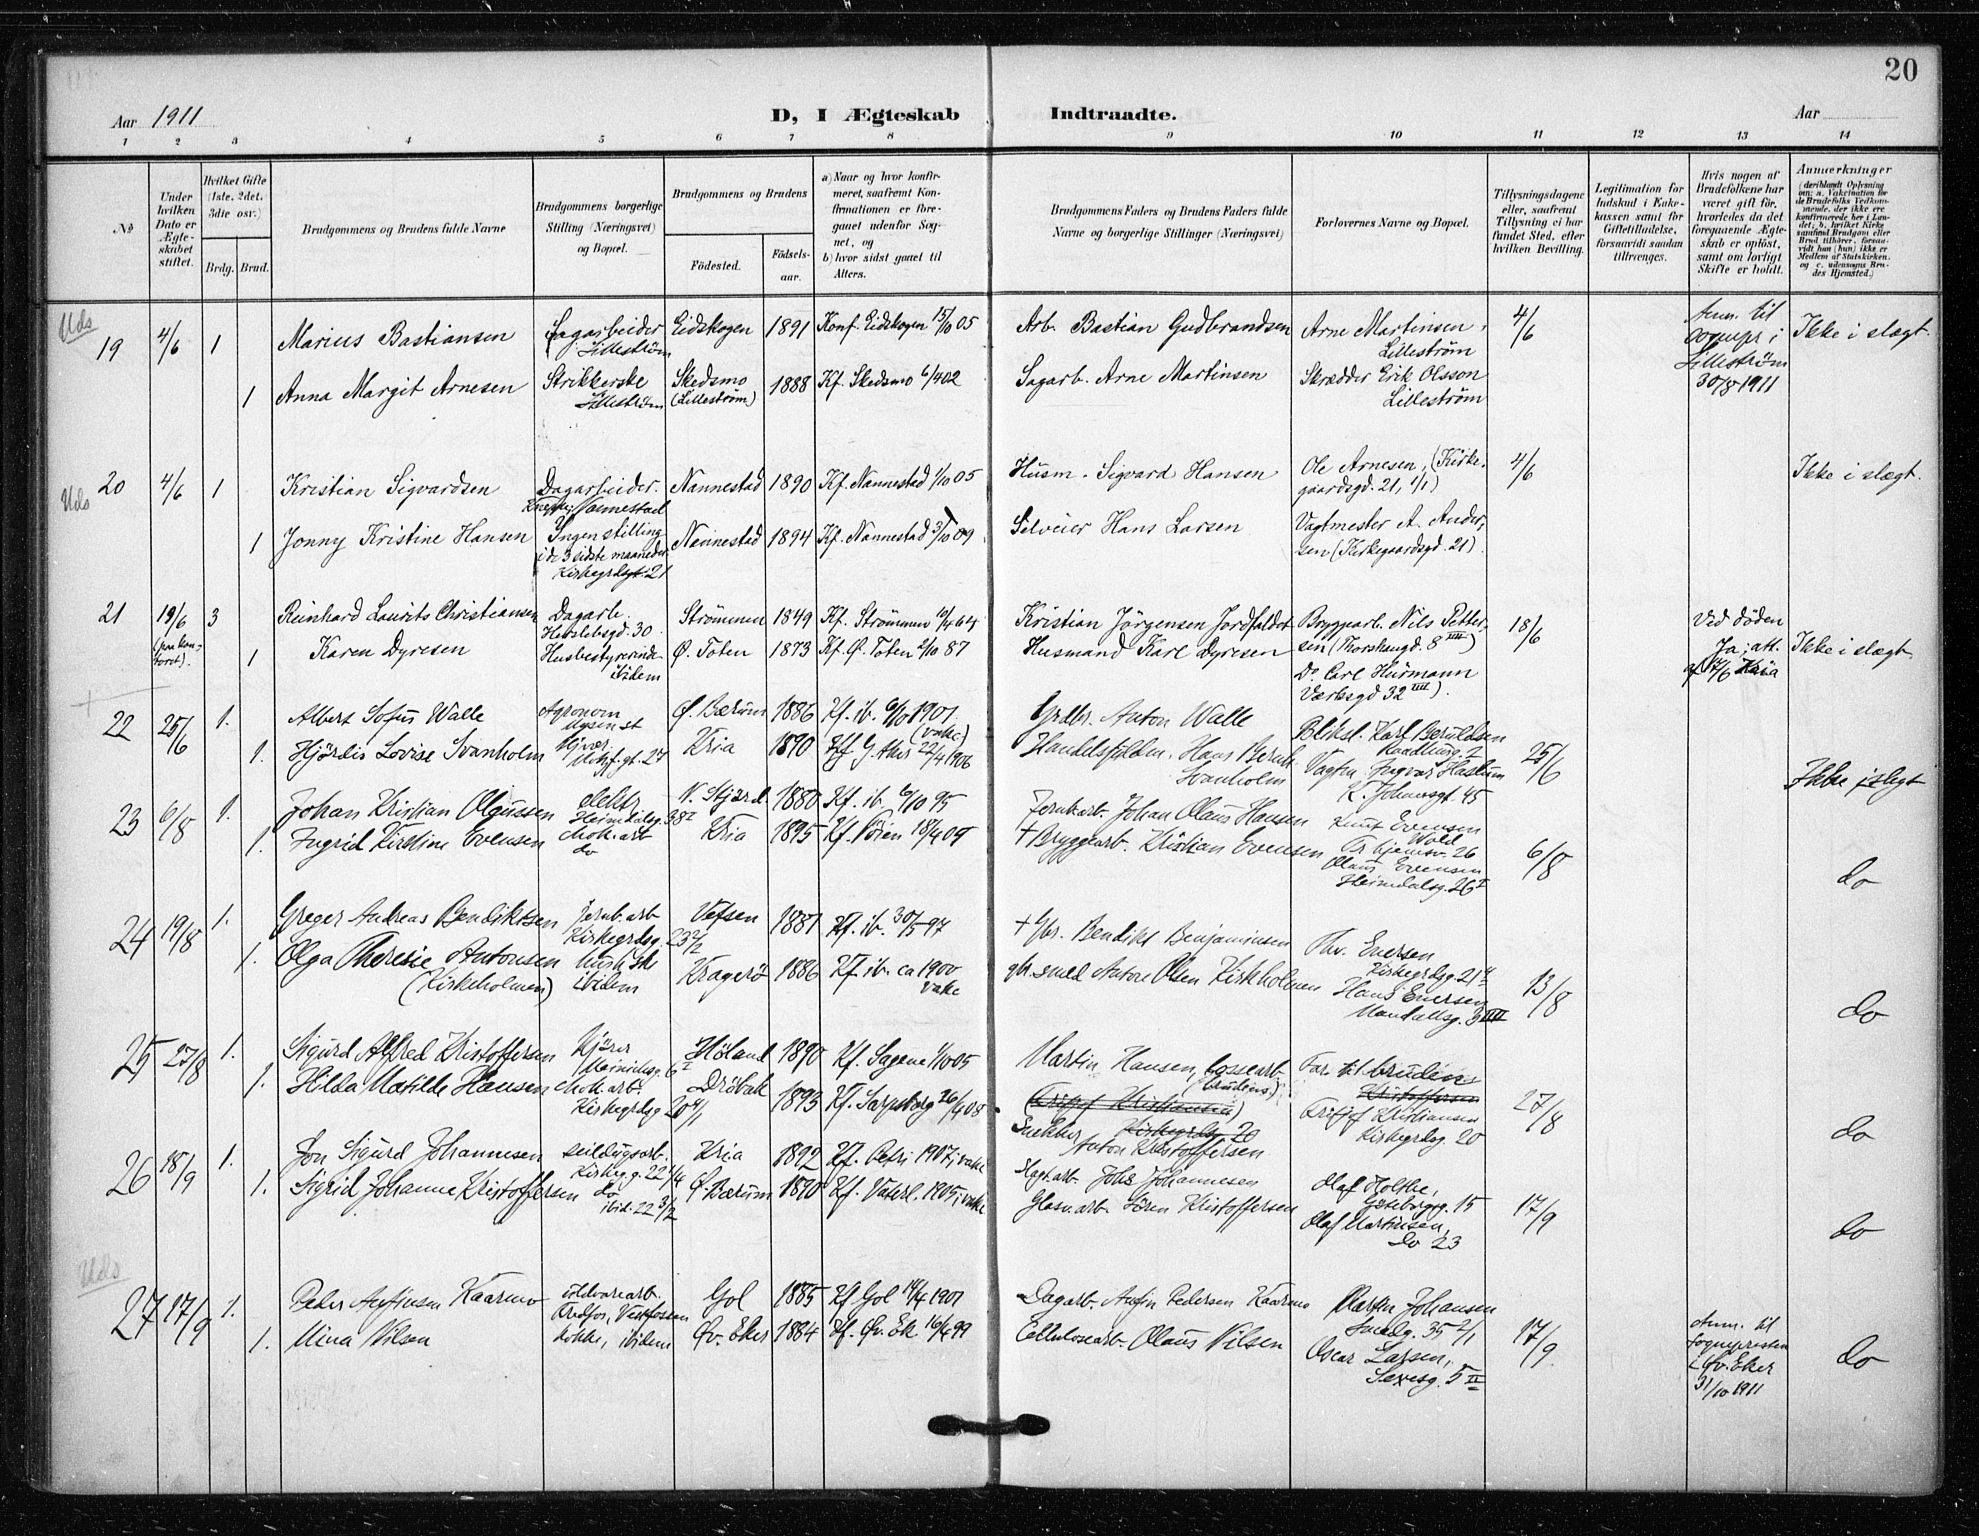 20
Aar 1911
D, I Ægteskab Indtraadte.
Aar
1 2 3 4 5 6 7 8 9 10 11 12 13 14
№
Under hvilken Dato er Ægteskabet stiftet.
Hvilket Gifte (1ste, 2det, 3die osv.)
Brdg. Brud.
Brudgommens og Brudens fulde Navne
Brudgommens borgerlige Stilling (Næringsvei) og Bopæl.
Brudgommens og Brudens
Fødested.
Fødselsaar.
a) Naar og hvor konfirmeret, saafremt Konfirmationen er foregaaet udenfor Sognet, og
b) hvor sidst gaaet til Alters.
Brudgommens Faders og Brudens Faders fulde Navne og borgerlige Stillinger (Næringsvei)
Forlovernes Navne og Bopæl.
Tillysningsdagene eller, saafremt Tillysning ei har fundet Sted, efter hvilken Bevilling.
Legitimation for Indskud i Enkekassen samt for Giftetilladelse, forsaavidt saadan tiltrænges.
Hvis nogen af Brudefolkene har været gift før, hvorledes da det foregaaende Ægteskab er opløst, samt om lovligt Skifte er holdt.
Anmærkninger
Uds
19 4/6 1 Marius Bastiansen Sagarbeider Lillestrøm Eidskogen 1891 Konf. Eidskogen 15/10 05 Arb. Bastian Gudbrandsen Arne Martinsen, Lillestrøm 4/6 Ikke i slegt.
1 Anna Margit Arnesen Strikkerske Lillestrøm Skedsmo (Lillestrøm) 1888 Kf. Skedsmo 6/4 02 Sagarb. Arne Martinsen Skrædder Erik Olsson Lillestrøm
Lillestrøm 30/8 1911
Uds
20 4/6 1 Kristian Sigvardsen Dagarbeider Nannestad Nannestad 1890 Kf. Nannestad 1/10 05 Husm. Sigvard Hansen Ole Arnesen, (Kirkegaardsgd. 21, 1/1) 4/6 Ikke i slegt.
1 Jonny Kristine Hansen Ingen stilling i de 3 sidste maaneder Kirkegrdsgt. 21 Nannestad 1894 Kf. Nannestad 3/10 09 Hans Larsen Vagtmester A. Andersen (Kirkegaardsgd. 21).
21 19/6 (paa kontoret). 3 Reinhard Laurits Christiansen Dagarb. Herslebsgd. 30 Strømmen 1849 Kf. Strømmen 10/4 64 Kristian Jörgensen Jordfaldet Bryggearb. Nils Pettersen (Thorshaugd. 8 IIII) 18/6 Ved døden Ja; att. af 17/6 Ikke i slegt.
1 Karen Dyresen Husbestyrerinde ibidem Ø. Toten 1873 Kf. Ø. Toten 2/10 87 Husmand Karl Dyresen Dr. Carl Hürmann Værksgd 32 IIII).
22 25/6 1. Albert Sofus Walle Agronom Ø. Bærum 1886 Kf. ib. 6/10 1901 (vakc) Grdbr. Anton Walle Bliksl. Karl Beruldsen 25/6 Ikke i slegt
1. Hjördis Lovise Svanholm Kria 1890 Kf. G. Aker 22/4 1906 Svanholm Ingvar Haslum K. Johansgt. 45
23 6/8 1. Johan Kristjan Olgussen elektr. Heimdalsg. 38 I N. Stjørd 1880 Kf. ib. 6/10 95 Jernbarb. Johan Olaus Hansen Knut Evensen Wold 6/8 do
1. Ingrid Kirstine Evensen Chok. arb do Kria 1895 Kf. Paien 18/4 09 + Bryggearb. Kristian Evensen Olaus Evensen Heimdalsg. 26 I
24 19/8 1. Greger Andreas Bendiktsen Jernb. arb Kirkegrdsg. 23 2/2 Vefsen 1881 Kf. ib. 30/5 97 + Gbr. Bendikt Benjaminsen Thv. Enersen Kirkegrdsg. 21 13/8 do
1. Olga Theresie Antonsen (Kirkeholmen) ibidem Kragerø 1886 Kf. ib. ca 1900 vakc smed Anton Olsen Kirkholmen Hans Enersen Mandallsg. 3 IIII
25 27/8 1. Sigurd Alfred Kristoffersen Kjører Meinichsg. 6 I Høland 1890 Kf. Sagene 1/10 05 Martin Hansen, fossearb. (brudens) Far til bruden 27/8 do
1. Hilda Matilde Hansen Chok. arb. Kirkegrdsg 20 4/1 Drøbak 1893 Kf. Sarpsborg 26/4 08 Snekker Anton Kristoffersen Fritjof Kristiansen Kirkegrdsg. 20
26 18/9 1. Jon Sigurd Johannesen Kirkeg. g. 22 1/4 Kria 1892 Kf. Petri 1907; vakc Slagt. arb. Johs Johannesen Olaf Holthe, Göteborgg. 15 17/9 do
1. Sigrid Johanne Kristoffersen do ibid. 22 3/2 Ø. Bærum 1890 Kf. Vaterl. 1905; vakc Glasv. arb. Sören Kristoffersen Olaf Martinsen, do 23
Uds
27 17/9 1. Peder Anfinsen Kaarmo Vestfossen Gol 1885 Kf Gol 14/4 1901 Dagarb. Anfin Pedersen Kaarmo Martin Johansen Smedg. 35 2/1 17/9 do
1. Mina Nilsen kokke, ibidem Øv. Eker 1884 Kf. Øv. Ek 16/4 99 Cellulosearb. Olaus Nilsen Oscar Larsen, Saxesg. 5 II
Anm. til Sognepresten i Øv. Eker 31/10 1911